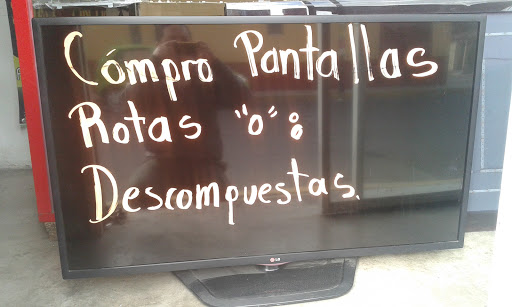 Cómpro Pantallas
Rotas "o" :
Descompuestas.
LG